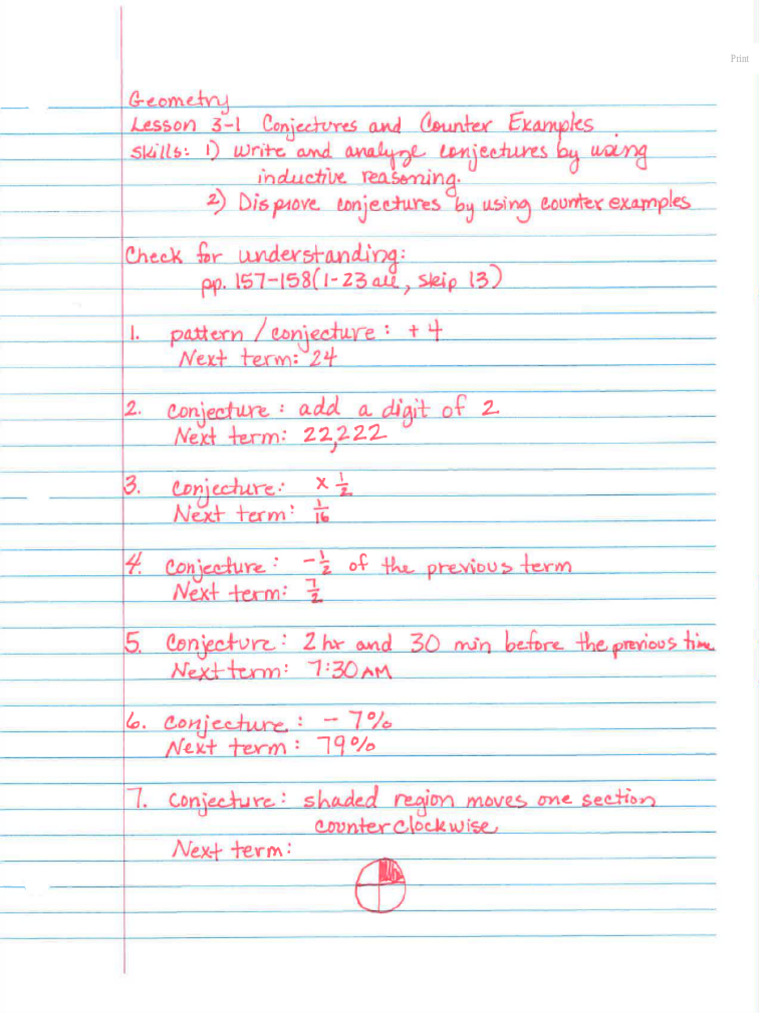 Print
Geometry
Lesson 3-1 Conjectures and Counter Examples
Skills: 1) Write and analyze conjectures by using
inductive reasoning.
2) Disprove conjectures by using counter examples
Check for understanding:
pp. 157-158 (1-23 all, skip 13)
1. pattern / conjecture: +4
Next term: 24
2. conjecture: add a digit of 2
Next term: 22,222
3. conjecture: × 1/2
Next term: 1/16
4. conjecture: -1/2 of the previous term
Next term: 7/2
5. conjecture: 2 hr and 30 min before the previous time
Next term: 7:30 AM
6. conjecture: - 7%
Next term: 79%
7. conjecture: shaded region moves one section
counterclockwise
Next term: